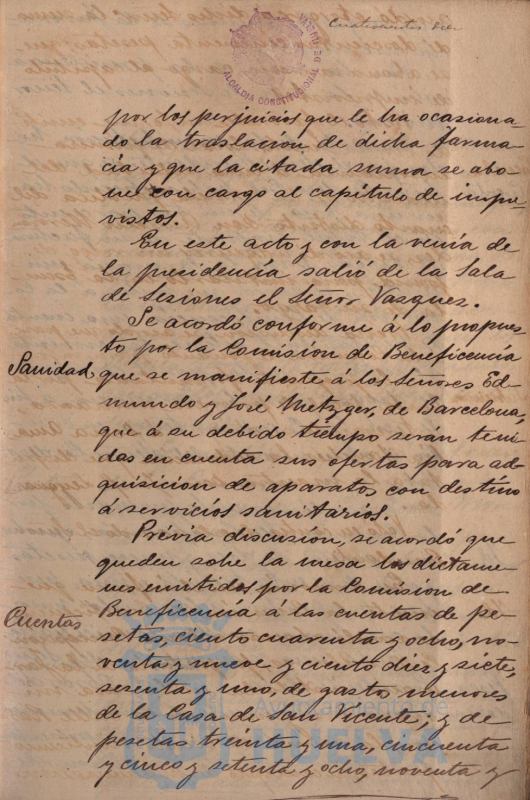 Cuatrocientos diez
ALCALDIA CONSTITUCIONAL DE HUELVA
por los perjuicios que le ha ocasiona-
do la traslación de dicha farma-
cia y que la citada suma se abo-
ne con cargo al capitulo de impre-
vistos.
En este acto y con la venia de
la presidencia salió de la Sala
de Sesiones el Señor Vasquez.
Se acordó conforme á lo propues-
to por la Comision de Beneficencia
Sanidad
que se manifieste á los Señores Ed-
mundo y José Metzger, de Barcelona,
que á su debido tiempo serán teni-
das en cuenta sus ofertas para ad-
quisicion de aparatos con destino
á servicios sanitarios.
Prévia discusion, se acordó que
queden sobre la mesa los dictame-
nes emitidos por la Comision de
Cuentas
Beneficencia á las cuentas de pe-
setas, ciento cuarenta y ocho, no-
venta y nueve y ciento diez y siete,
sesenta y uno, de gasto menores
de la Casa de San Vicente; y de
pesetas treinta y una, cincuenta
y cinco y setenta y ocho, noventa y
Ayuntamiento de
HUELVA